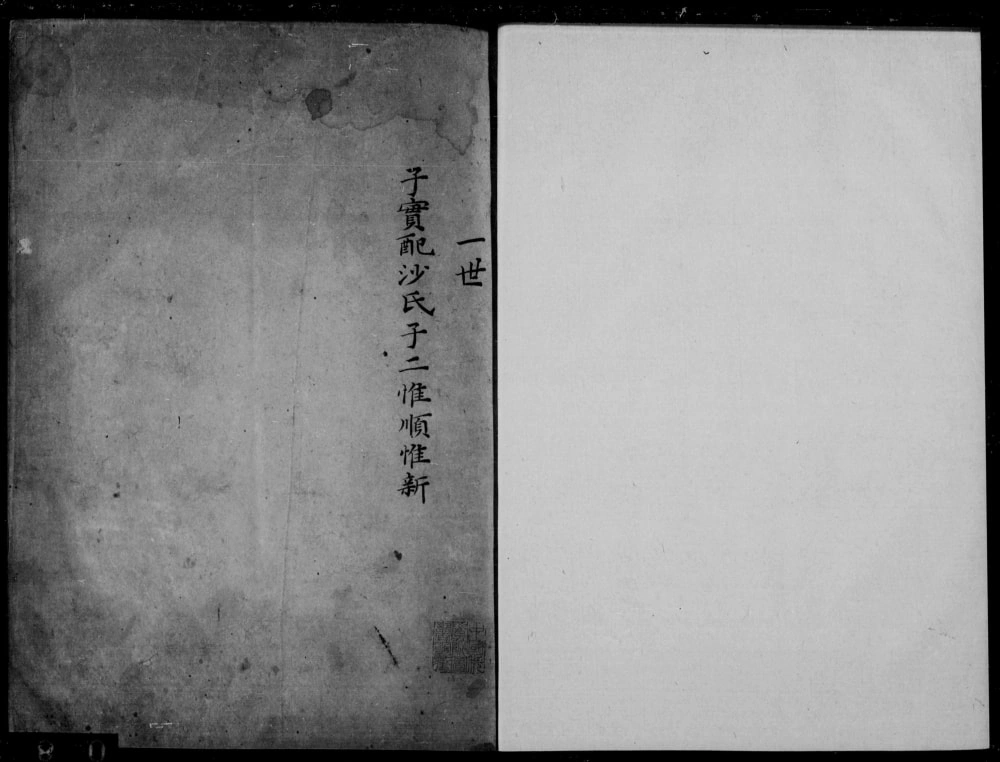 一世
子實配沙氏子二惟順惟新